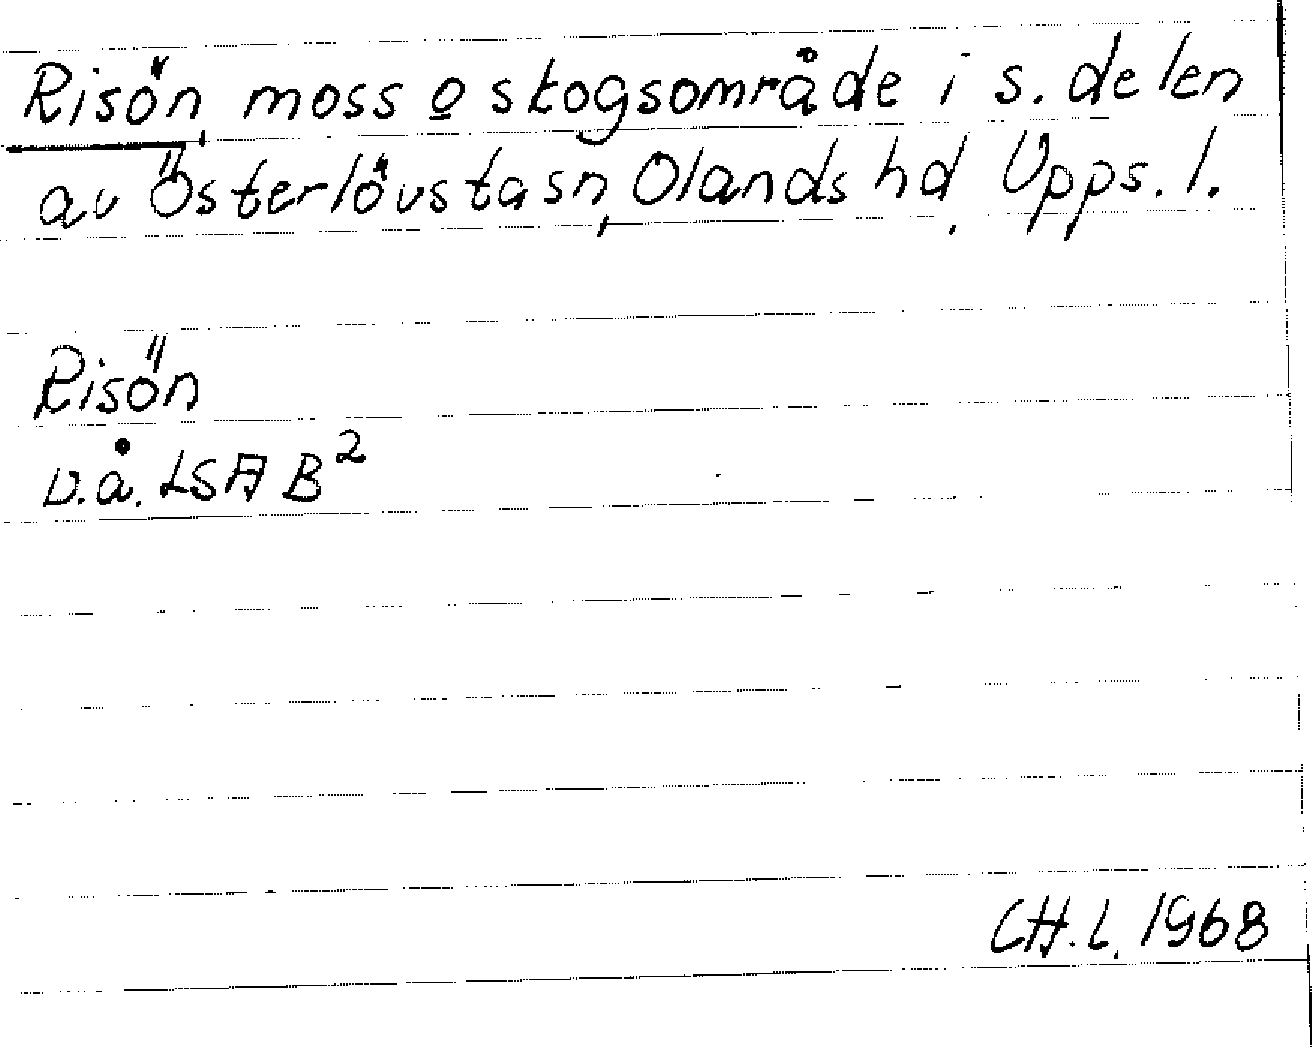 Risön, moss o skogsområde i s. delen
av Österlövsta sn, Olands hd, Upps. l.
Risön
U.å. LSA B²
CH.L. 1968